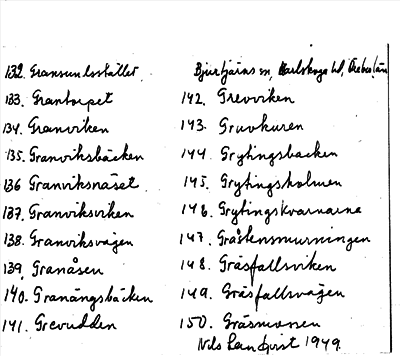 Bjurtjärns sn, Karlskoga hd, Örebro län
132. Gransundsstället
133. Grantorpet
134. Granviken
135. Granviksbäcken
136 Granviksnäset
137. Granviksviken
138. Granviksvägen
139. Granåsen
140. Granängsbäcken
141. Grevudden
142. Grevviken
143. Gruvkuren
144. Grytingsbacken
145. Grytingsholmen
146. Grytingskvarnarna
147. Gråstensmurningen
148. Gräsfallsviken
149. Gräsfallsvägen
150. Gräsmossen
Nils Landqvist 1949